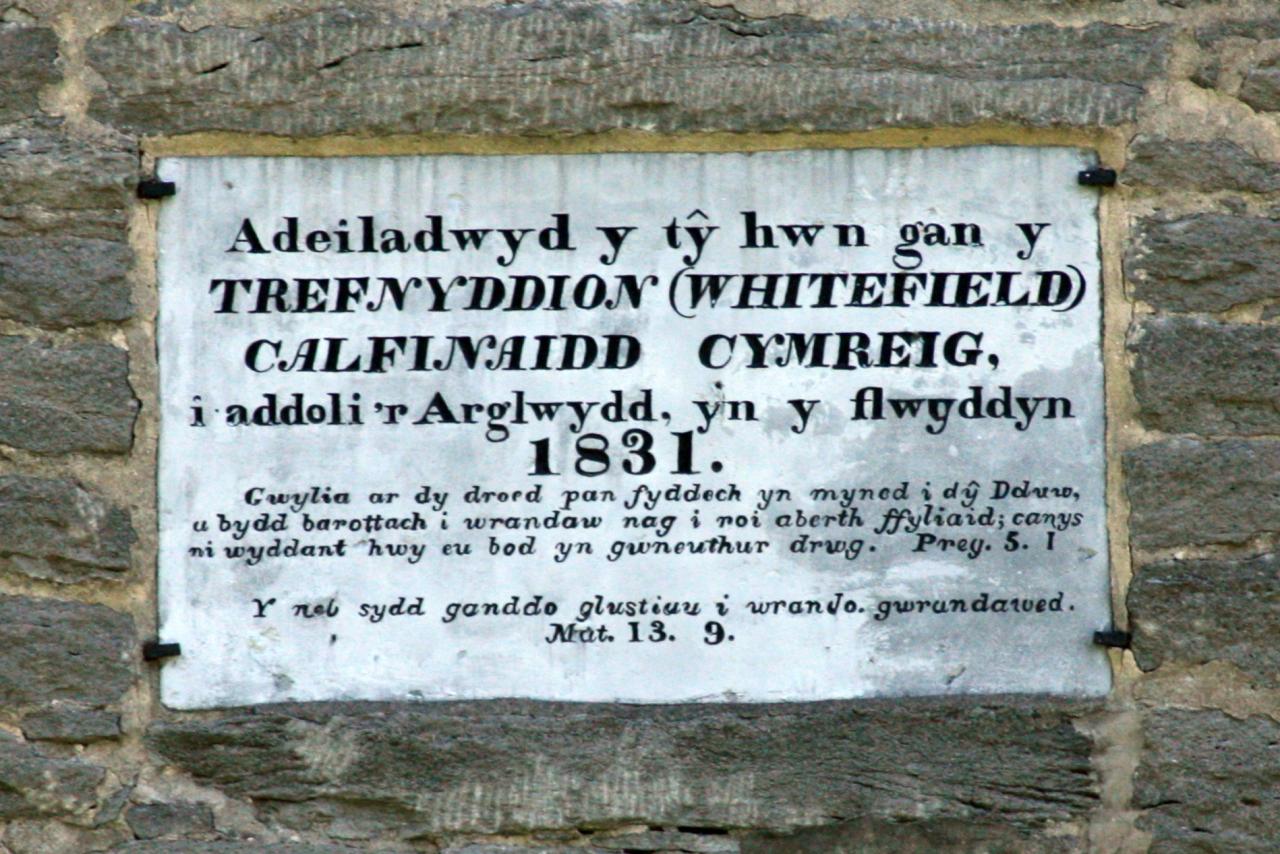 Adeiladwyd y tŷ hwn gan y
TREFNYDDION (WHITEFIELD)
CALFINAIDD CYMREIG,
i addoli 'r Arglwydd, yn y flwyddyn
1831.
Gwylia ar dy droed pan fyddech yn myned i dŷ Dduw,
a bydd barottach i wrandaw nag i roi aberth ffyliaid; canys
ni wyddant hwy eu bod yn gwneuthur drwg. Preg. 5. 1
Y neb sydd ganddo glustiau i wrando. gwrandawed.
Mat. 13. 9.